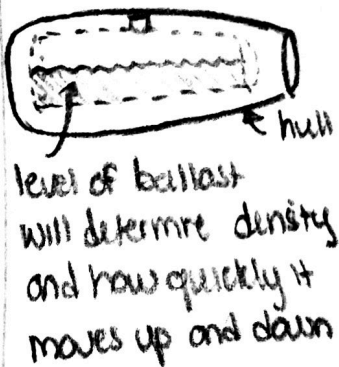 hull
level of ballast
will determine density
and how quickly it
moves up and down